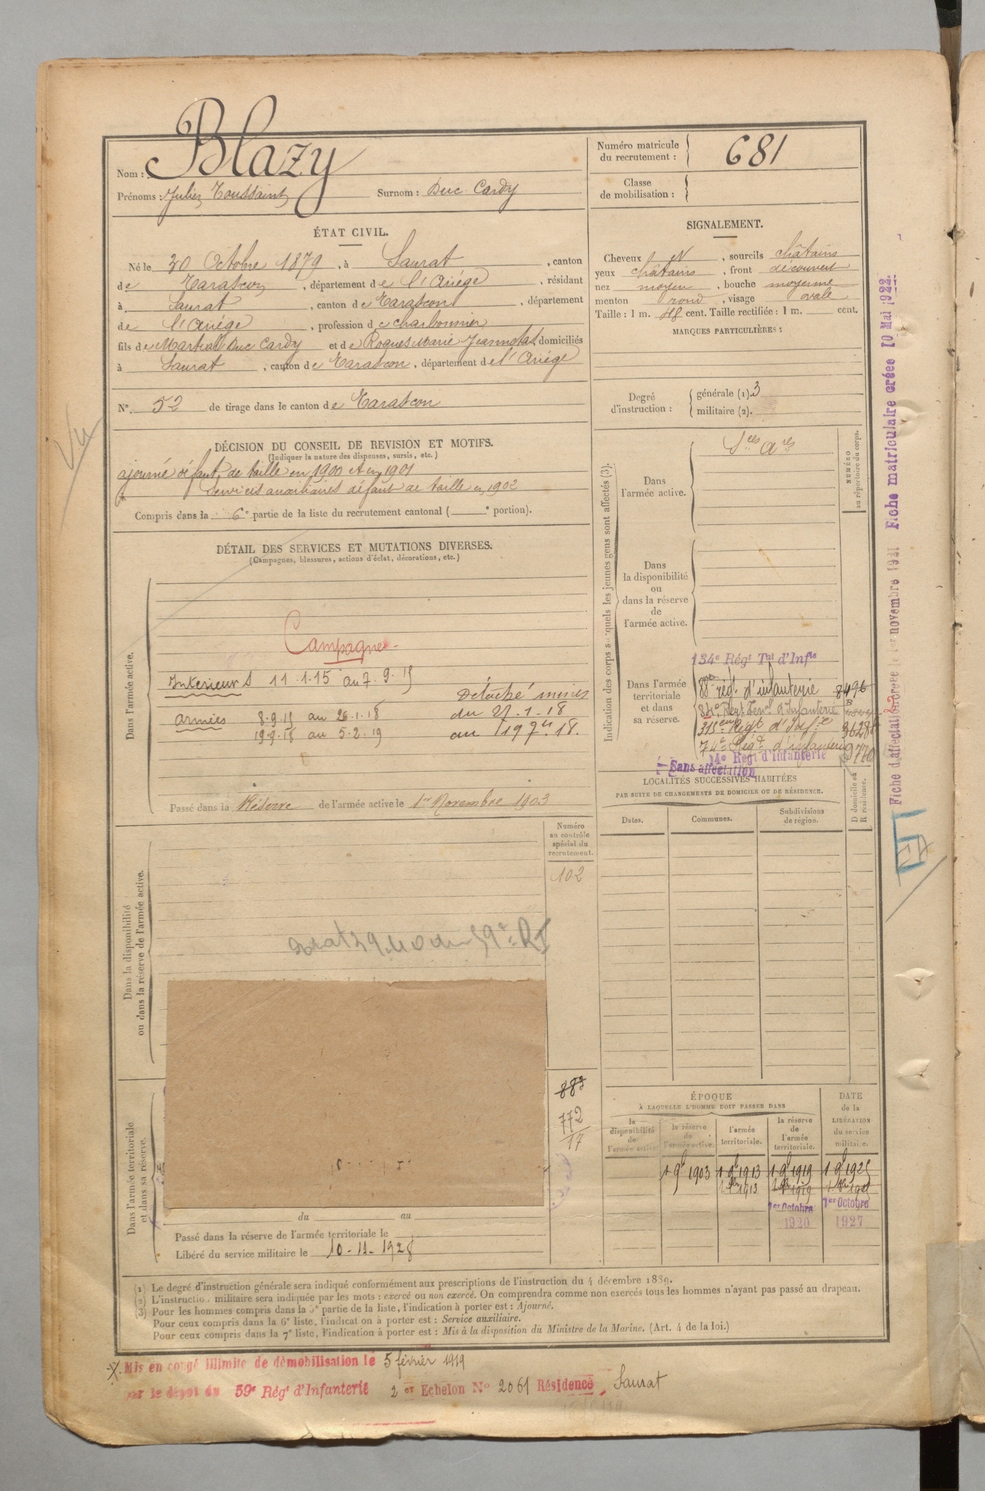 Nom : Blazy
Prénoms : Jules Toussaint Surnom : Duc Cardy
Numéro matricule
du recrutement : 681
Classe
de mobilisation :
ÉTAT CIVIL.
Né le 30 Octobre 1879, à Saurat, canton
de Tarascon, département de l'Ariège, résidant
à Saurat, canton de Tarascon, département
de l'Ariège, profession de charbonnier
fils de Martial Duc Cardy et de Roques Marie Jeanne domiciliés
à Saurat, canton de Tarascon, département de l'Ariège
N° 52 de tirage dans le canton de Tarascon
SIGNALEMENT.
Cheveux N, sourcils châtains
yeux châtains, front découvert
nez moyen, bouche moyenne
menton rond, visage ovale
Taille : 1 m. 48 cent. Taille rectifiée : 1 m. cent.
MARQUES PARTICULIÈRES :
Degré
d'instruction :
générale (1) 3
militaire (2).
Vu
DÉCISION DU CONSEIL DE REVISION ET MOTIFS.
(Indiquer la nature des dispenses, sursis, etc.)
ajourné défaut de taille en 1900 et en 1901
Services auxiliaires défaut de taille en 1902
Compris dans la 6e partie de la liste du recrutement cantonal ( e portion).
DÉTAIL DES SERVICES ET MUTATIONS DIVERSES.
(Campagnes, blessures, actions d'éclat, décorations, etc.)
Dans l'armée active.
Campagne
Intérieur 11.1.15 au 7.9.15
Armées 8.9.15 au 26.1.18
19.9.18 au 5.2.19
Détaché mines
du 27.1.18
au
Passé dans la Réserve de l'armée active le 1er Novembre 1903
Indication des corps auxquels les jeunes gens sont affectés (3).
NUMÉRO
au répertoire du corps.
Dans
l'armée active.
Dans
la disponibilité
ou
dans la réserve
de
l'armée active.
Dans l'armée
territoriale
et dans
sa réserve.
134e Régt Tal d'Infie
88e rég. d'infanterie 8496
Régt Terr. d'Infanterie
Régt d'Inf.
74e Régt d'infanterie
14e Regt d'Infanterie
Sans affectation
LOCALITÉS SUCCESSIVES HABITÉES
PAR SUITE DE CHANGEMENTS DE DOMICILE OU DE RÉSIDENCE.
Dates. Communes. Subdivisions
de région.
D domicile ou
R résidence.
Dans la disponibilité
ou dans la réserve de l'armée active.
Numéro
au contrôle
spécial du
recrutement.
102
Dans l'armée territoriale
et dans sa réserve.
772
17
du au
Passé dans la réserve de l'armée territoriale le
Libéré du service militaire le 10-11-1928
ÉPOQUE
À LAQUELLE L'HOMME DOIT PASSER DANS
la
disponibilité
de
l'armée active.
la réserve
de
l'armée active.
l'armée
territoriale.
la réserve
de
l'armée
territoriale.
DATE
de la
LIBÉRATION
du service
militaire.
1903 1913 1919
1er Octobre 1er Octobre
1920 1927
(1) Le degré d'instruction générale sera indiqué conformément aux prescriptions de l'instruction du 4 décembre 1889.
(2) L'instruction militaire sera indiquée par les mots : exercé ou non exercé. On comprendra comme non exercés tous les hommes n'ayant pas passé au drapeau.
(3) Pour les hommes compris dans la 5e partie de la liste, l'indication à porter est : Ajourné.
Pour ceux compris dans la 6e liste, l'indication à porter est : Service auxiliaire.
Pour ceux compris dans la 7e liste, l'indication à porter est : Mis à la disposition du Ministre de la Marine. (Art. 4 de la loi.)
Mis en congé illimité de démobilisation le 5 février 1919
par le dépôt du 59e Régt d'Infanterie 2e Echelon N° 2061 Résidence, Saurat
Fiche d'affectation créée le 1er novembre 1921 Fiche matriculaire créée 10 Mai 1922